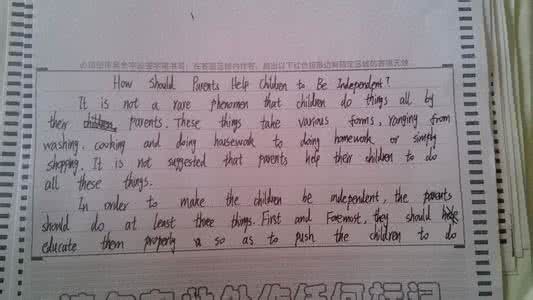 How Should Parents Help Children to Be Independent?
It is not a rare phenomen that children do things all by
their children parents. These things take various forms, ranging from
washing, cooking and doing housework to doing homework or simply
shopping. It is not suggested that parents help their children to do
all these things.
In order to make the children be independent, the parents
should do at least three things. First and Foremost, they should
educate them properly so as to push the children to do